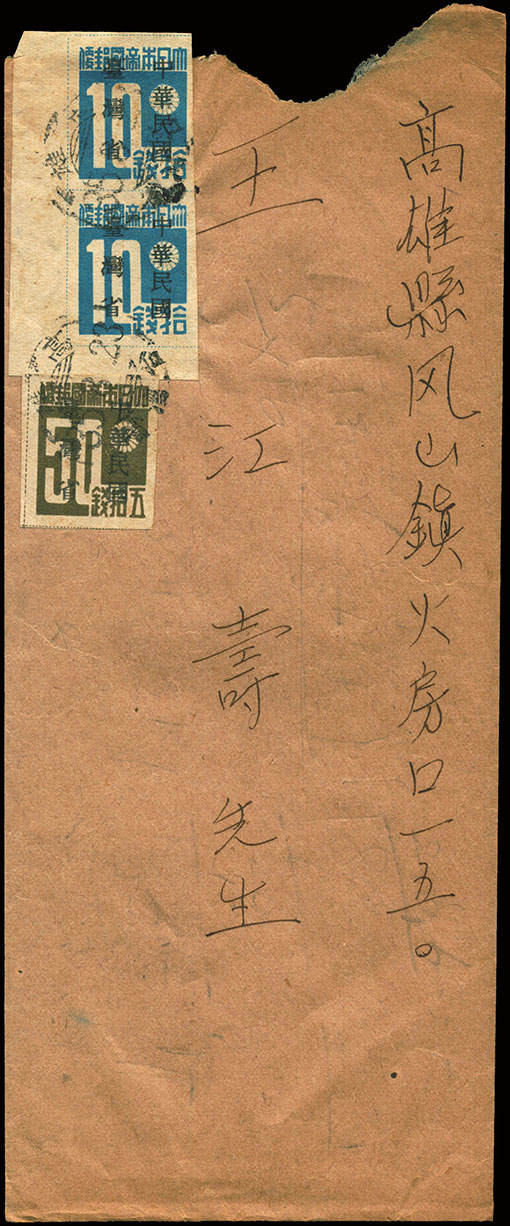 高雄縣凤山鎮火房口一五。
王江壽先生
大日本帝國郵便
中華民國
臺灣省
10
拾錢
大日本帝國郵便
中華民國
臺灣省
10
拾錢
大日本帝國郵便
中華民國
臺灣省
50
五拾錢